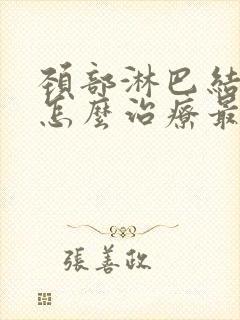 頚部淋巴結
怎麼治療最
張善政